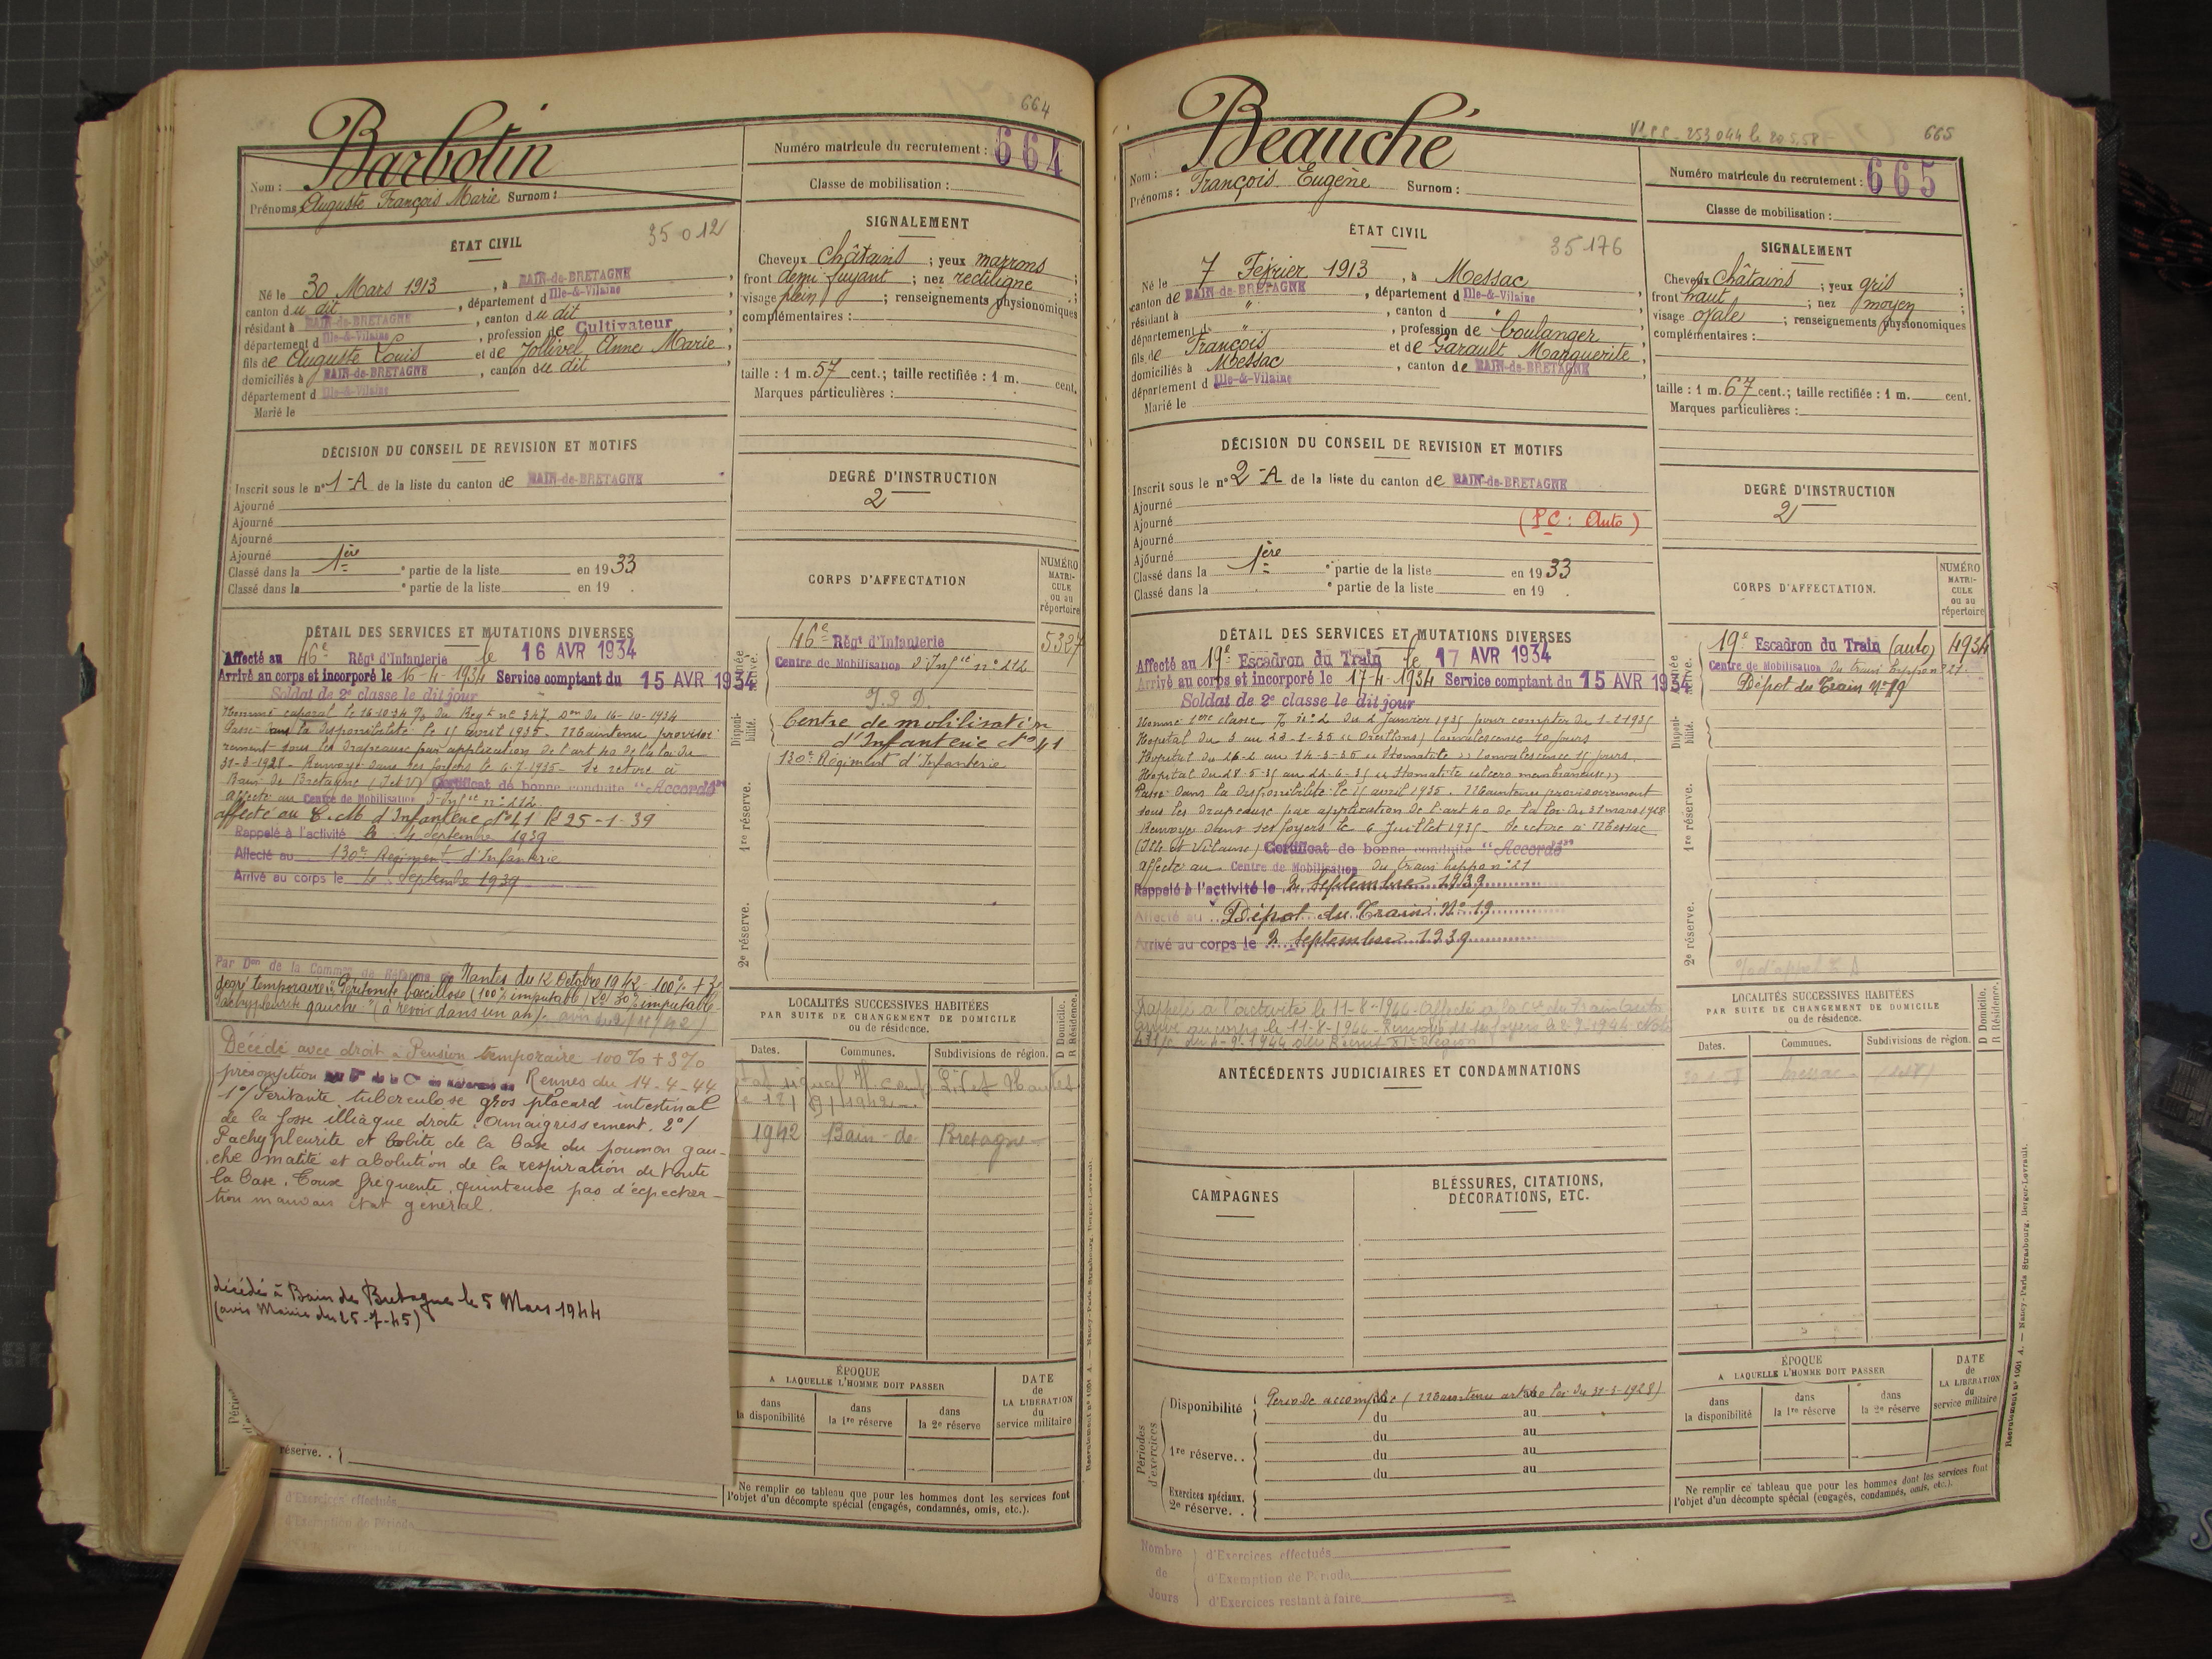 664
Barbotin
Numéro matricule du recrutement : 664
Nom :
Prénoms : Auguste François Marie Surnom :
Classe de mobilisation :
35012
ÉTAT CIVIL
Né le 30 Mars 1913, à BAIN-de-BRETAGNE,
canton du dit, département d Ille-&-Vilaine,
résidant à BAIN-de-BRETAGNE, canton du dit,
département d Ille-&-Vilaine, profession de Cultivateur
fils de Auguste Louis et de Jollivel Anne Marie,
domiciliés à BAIN-de-BRETAGNE, canton du dit,
département d Ille-&-Vilaine
Marié le
SIGNALEMENT
Cheveux châtains ; yeux marrons ;
front demi fuyant ; nez rectiligne ;
visage plein ; renseignements physionomiques
complémentaires :
taille : 1 m. 57 cent.; taille rectifiée : 1 m. cent.
Marques particulières :
DÉCISION DU CONSEIL DE REVISION ET MOTIFS
Inscrit sous le n° 1-A de la liste du canton de BAIN-de-BRETAGNE
Ajourné
Ajourné
Ajourné
Ajourné
Classé dans la 1ère partie de la liste en 1933
Classé dans la partie de la liste en 19 .
DEGRÉ D'INSTRUCTION
2
DÉTAIL DES SERVICES ET MUTATIONS DIVERSES
Affecté au 46e Régt d'Infanterie le 16 AVR 1934
Arrivé au corps et incorporé le 16-4-1934 Service comptant du 15 AVR 1934
Soldat de 2e classe le dit jour
Nommé caporal le 16-10-34 % du Régt n° 347. Don du 16-10-1934
Passé dans la disponibilité le 15 avril 1935. Maintenu provisoi
rement sous les drapeaux par application de l'art 40 de la loi du
31-3-1928 - Renvoyé dans ses foyers le 6-7-1935 - Se retire à
Bain de Bretagne (I et V) Certificat de bonne conduite "Accordé"
Affecté au Centre de Mobilisation d'Infie n° 212
affecté au C. M d'Infanterie N° 41 le 25-1-39
Rappelé à l'activité le 4 Septembre 1939
Affecté au 130e Régiment d'Infanterie
Arrivé au corps le 4 Septembre 1939
Par Don de la Common de Réforme de Nantes du 12 Octobre 1942 - 100% + 3e
degré temporaire "Péritonite bacillose (100% imputable) 2°) 30% imputable
Pachypleurite gauche" (à revoir dans un an)
Décédé avec droit à Pension temporaire 100% + 3%
présomption Rennes du 14-4-44
1°/ Péritonite tuberculose gros placard intestinal
de la fosse illiàque droite. Amaigrissement. 2°/
Pachypleurite et lobite de la base du poumon gau-
che matité et abolution de la respiration de toute
la base. Toux fréquente, quinteuse pas d'expectora-
tion mauvais état général.
décédé à Bain de Bretagne le 5 Mars 1944
(avis Mairie du 25-7-45)
réserve. .
d'Exercices effectués
d'Exemption de Période
CORPS D'AFFECTATION
NUMÉRO MATRI-CULE ou au répertoire
46e Régt d'Infanterie 5327
Centre de Mobilisation d'Infie n° 212
Centre de mobilisation
d'Infanterie N° 41
130e Régiment d'Infanterie
Disponi-bilité.
1re réserve.
2e réserve.
LOCALITÉS SUCCESSIVES HABITÉES
PAR SUITE DE CHANGEMENT DE DOMICILE
ou de résidence.
D Domicile.
R Résidence.
Dates. Communes. Subdivisions de région.
1942 Bain-de- Bretagne
ÉPOQUE
A LAQUELLE L'HOMME DOIT PASSER
dans la disponibilité
dans la 1re réserve
dans la 2e réserve
DATE de LA LIBÉRATION du service militaire
Ne remplir ce tableau que pour les hommes dont les services font
l'objet d'un décompte spécial (engagés, condamnés, omis, etc.).
665
Beauché
Numéro matricule du recrutement : 665
Nom :
Prénoms : François Eugène Surnom :
Classe de mobilisation :
35176
ÉTAT CIVIL
Né le 7 Février 1913, à Messac,
canton de BAIN-de-BRETAGNE, département d Ille-&-Vilaine,
résidant à ", canton d ",
département d ", profession de boulanger,
fils de François et de Garault Marguerite,
domiciliés à Messac, canton de BAIN-de-BRETAGNE,
département d Ille-&-Vilaine
Marié le
SIGNALEMENT
Cheveux châtains ; yeux gris ;
front haut ; nez moyen ;
visage ovale ; renseignements physionomiques
complémentaires :
taille : 1 m. 67 cent.; taille rectifiée : 1 m. cent.
Marques particulières :
DÉCISION DU CONSEIL DE REVISION ET MOTIFS
Inscrit sous le n° 2-A de la liste du canton de BAIN-de-BRETAGNE
Ajourné
Ajourné (PC : Auto)
Ajourné
Ajourné
Classé dans la 1ère partie de la liste en 1933
Classé dans la partie de la liste en 19 .
DEGRÉ D'INSTRUCTION
2
DÉTAIL DES SERVICES ET MUTATIONS DIVERSES
Affecté au 19e Escadron du Train le 17 AVR 1934
Arrivé au corps et incorporé le 17-4-1934 Service comptant du 15 AVR 1934
Soldat de 2e classe le dit jour
Nommé 1ère classe % n° 2 du 2 Janvier 1935 pour compter du 1-1-1935
Hopital du 3 au 23-1-35 "Oreillons" convalescence 20 jours
Hopital du 26-2 au 14-3-35 "Stomatite" Convalescence 15 jours.
Hopital du 28-5-35 au 22-6-35 "Stomatite ulcero membraneuse"
Passé dans la disponibilité le 15 avril 1935. Maintenu provisoirement
sous les drapeaux par application de l'art 40 de la loi du 31 mars 1928
Renvoyé dans ses foyers le 6 Juillet 1935 - Se retire à Messac
(Ille et Vilaine) Certificat de bonne conduite "Accordé"
Affecté au Centre de Mobilisation du train hippo n° 21
Rappelé à l'activité le 2 Septembre 1939
Affecté au Dépôt du Train N° 19
Arrivé au corps le 2 Septembre 1939
Rappelé à l'activité le 11-8-1944
ANTÉCÉDENTS JUDICIAIRES ET CONDAMNATIONS
CAMPAGNES
BLESSURES, CITATIONS,
DÉCORATIONS, ETC.
Périodes d'exercices
Disponibilité Période accomplie (Maintenu art 40 loi du 31-3-1928)
du au
du au
1re réserve. . du au
du au
Exercices spéciaux.
2e réserve. .
Nombre de Jours
d'Exercices effectués
d'Exemption de Période
d'Exercices restant à faire
CORPS D'AFFECTATION.
NUMÉRO MATRI-CULE ou au répertoire
19e Escadron du Train (auto) 4934
Centre de Mobilisation du train hippo n° 21
Dépôt du Train N° 19
Disponi-bilité.
1re réserve.
2e réserve.
LOCALITÉS SUCCESSIVES HABITÉES
PAR SUITE DE CHANGEMENT DE DOMICILE
ou de résidence.
D Domicile.
R Résidence.
Dates. Communes. Subdivisions de région.
Messac
ÉPOQUE
A LAQUELLE L'HOMME DOIT PASSER
dans la disponibilité
dans la 1re réserve
dans la 2e réserve
DATE de LA LIBÉRATION du service militaire
Ne remplir ce tableau que pour les hommes dont les services font
l'objet d'un décompte spécial (engagés, condamnés, omis, etc.).